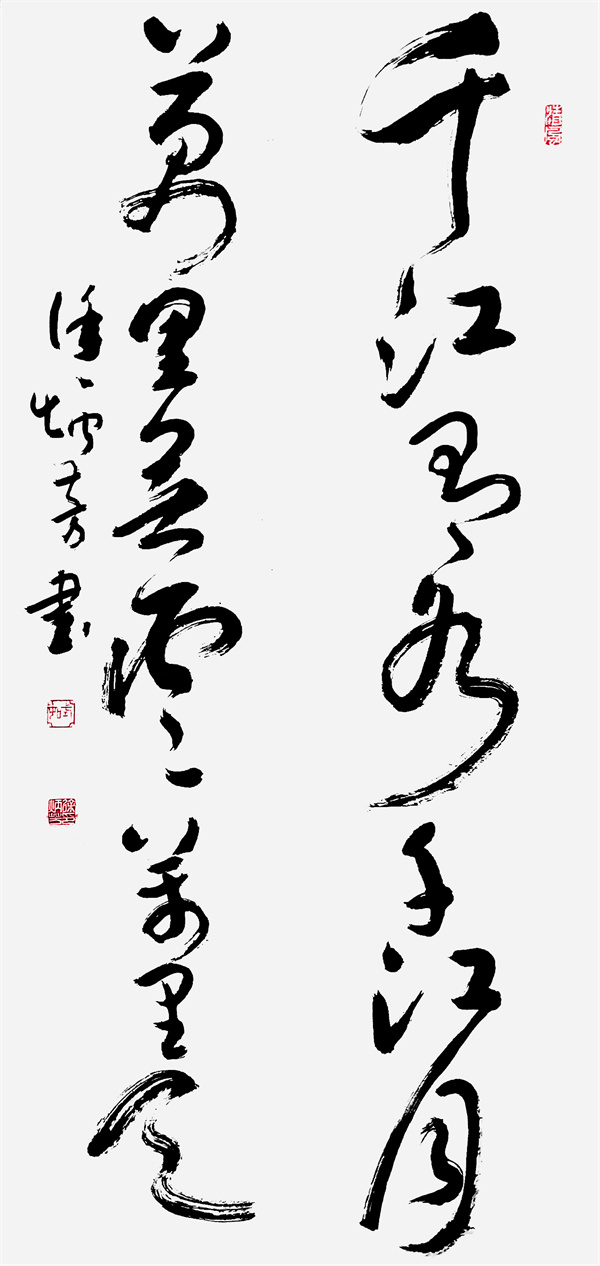 千江有水千江月
萬里無雲萬里天
徐炳芳書